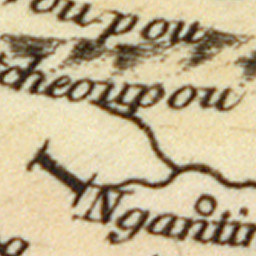 oupou
cheoupou
Ngantin